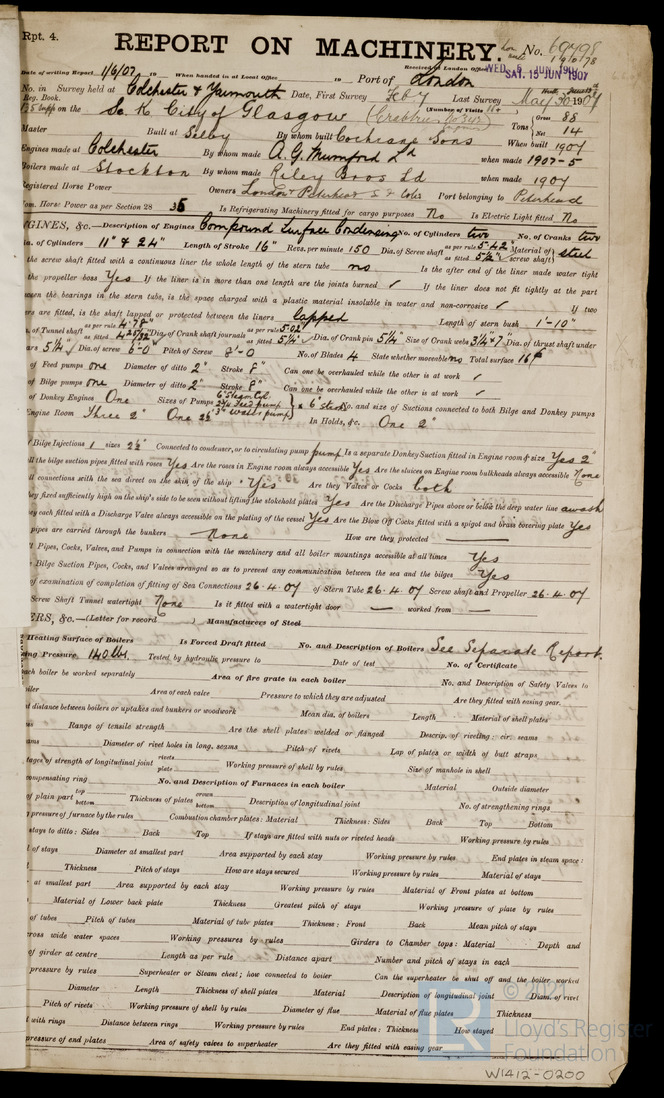 Rpt. 4.
REPORT ON MACHINERY.
No. 69498
Date of writing Report 1/6/07 19 When handed in at Local Office 19 Port of London
Received at London Office WED. 5 JUN 1907
SAT. 15 JUN 1907
No. in Survey held at Colchester & Yarmouth Date, First Survey Feb 7 Last Survey May 30 1907
Reg. Book.
on the Sc. K City of Glasgow (Number of Visits
Tons Gross 88
Net 14
Master Built at Selby By whom built Cochrane Sons When built 1907
Engines made at Colchester By whom made A. G. Mumford Ld when made 1907-5
Boilers made at Stockton By whom made Riley Bros Ld when made 1907
Registered Horse Power Owners London & Peterhead S. Port belonging to Peterhead
Nom. Horse Power as per Section 28 35 Is Refrigerating Machinery fitted for cargo purposes No Is Electric Light fitted No
GINES, &c.—Description of Engines Compound Surface Condensing No. of Cylinders two No. of Cranks two
a. of Cylinders 11" & 24" Length of Stroke 16" Revs. per minute 150 Dia. of Screw shaft as per rule 5.42" as fitted 5 3/4" Material of screw shaft steel
the screw shaft fitted with a continuous liner the whole length of the stern tube no Is the after end of the liner made water tight
the propeller boss Yes If the liner is in more than one length are the joints burned ✓ If the liner does not fit tightly at the part
ween the bearings in the stern tube, is the space charged with a plastic material insoluble in water and non-corrosive ✓ If two
ers are fitted, is the shaft lapped or protected between the liners lapped Length of stern bush 1'-10"
. of Tunnel shaft as per rule 4.78" as fitted 4 25/32" Dia. of Crank shaft journals as per rule 5.02" as fitted 5 1/4" Dia. of Crank pin 5 1/4" Size of Crank webs 3 1/4 × 7 Dia. of thrust shaft under
ars 5 1/4" Dia. of screw 6'-0 Pitch of Screw 8'-0 No. of Blades 4 State whether moveable no Total surface 16 f
of Feed pumps one Diameter of ditto 2" Stroke 8" Can one be overhauled while the other is at work ✓
of Bilge pumps one Diameter of ditto 2" Stroke 8" Can one be overhauled while the other is at work ✓
of Donkey Engines One Sizes of Pumps 6" Steam Cyl. Feed pump 3" Water pump × 6" stroke No. and size of Suctions connected to both Bilge and Donkey pumps
Engine Room Three 2" One 2½" In Holds, &c. One 2"
Bilge Injections 1 sizes 2½" Connected to condenser, or to circulating pump pump Is a separate Donkey Suction fitted in Engine room & size Yes 2"
ll the bilge suction pipes fitted with roses Yes Are the roses in Engine room always accessible Yes Are the sluices on Engine room bulkheads always accessible None
ll connections with the sea direct on the skin of the ship Yes Are they Valves or Cocks both
hey fixed sufficiently high on the ship's side to be seen without lifting the stokehold plates Yes Are the Discharge Pipes above or below the deep water line awash
ey each fitted with a Discharge Valve always accessible on the plating of the vessel Yes Are the Blow Off Cocks fitted with a spigot and brass covering plate Yes
pipes are carried through the bunkers None How are they protected
l Pipes, Cocks, Valves, and Pumps in connection with the machinery and all boiler mountings accessible at all times Yes
e Bilge Suction Pipes, Cocks, and Valves arranged so as to prevent any communication between the sea and the bilges Yes
of examination of completion of fitting of Sea Connections 26.4.07 of Stern Tube 26.4.07 Screw shaft and Propeller 26.4.07
Screw Shaft Tunnel watertight None Is it fitted with a watertight door — worked from —
ERS, &c.—(Letter for record ) Manufacturers of Steel
Heating Surface of Boilers Is Forced Draft fitted No. and Description of Boilers See Separate Report.
ing Pressure 140 lbs. Tested by hydraulic pressure to Date of test No. of Certificate
ach boiler be worked separately Area of fire grate in each boiler No. and Description of Safety Valves to
oiler Area of each valve Pressure to which they are adjusted Are they fitted with easing gear
t distance between boilers or uptakes and bunkers or woodwork Mean dia. of boilers Length Material of shell plates
ss Range of tensile strength Are the shell plates welded or flanged Descrip. of riveting: cir. seams
ams Diameter of rivet holes in long. seams Pitch of rivets Lap of plates or width of butt straps
tages of strength of longitudinal joint rivets plate Working pressure of shell by rules Size of manhole in shell
ompensating ring No. and Description of Furnaces in each boiler Material Outside diameter
of plain part top bottom Thickness of plates crown bottom Description of longitudinal joint No. of strengthening rings
pressure of furnace by the rules Combustion chamber plates: Material Thickness: Sides Back Top Bottom
stays to ditto: Sides Back Top If stays are fitted with nuts or riveted heads Working pressure by rules
l of stays Diameter at smallest part Area supported by each stay Working pressure by rules End plates in steam space:
Thickness Pitch of stays How are stays secured Working pressure by rules Material of stays
at smallest part Area supported by each stay Working pressure by rules Material of Front plates at bottom
Material of Lower back plate Thickness Greatest pitch of stays Working pressure of plate by rules
of tubes Pitch of tubes Material of tube plates Thickness: Front Back Mean pitch of stays
cross wide water spaces Working pressures by rules Girders to Chamber tops: Material Depth and
of girder at centre Length as per rule Distance apart Number and pitch of stays in each
pressure by rules Superheater or Steam chest; how connected to boiler Can the superheater be shut off and the boiler worked
Diameter Length Thickness of shell plates Material Description of longitudinal joint Diam. of rivet
Pitch of rivets Working pressure of shell by rules Diameter of flue Material of flue plates Thickness
d with rings Distance between rings Working pressure by rules End plates: Thickness How stayed
pressure of end plates Area of safety valves to superheater Are they fitted with easing gear
© 2021
LR
Lloyd's Register
Foundation
W1412-0200